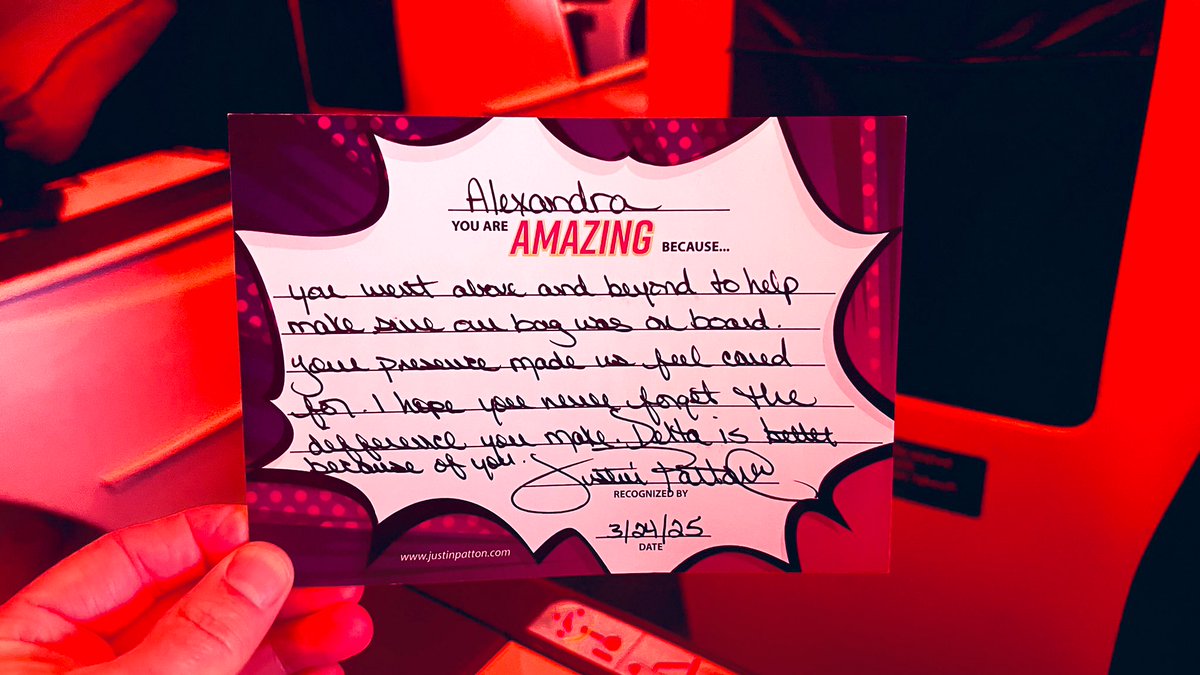 Alexandra
YOU ARE AMAZING BECAUSE...
you went above and beyond to help
make sure our bag was on board.
Your presence made us feel cared
for. I hope you never forget the
defference you make. Delta is better
because of you. Justin Patton
RECOGNIZED BY
3/24/25
DATE
www.justinpatton.com